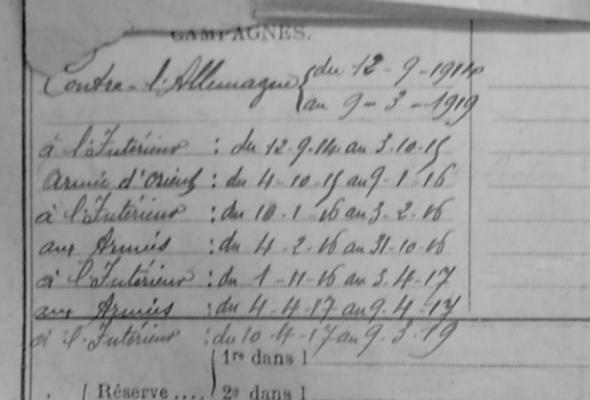 CAMPAGNES.
Contre l'Allemagne { du 12-9-1914
au 9-3-1919
à l'Intérieur : du 12.9.14 au 3.10.15
Armée d'Orient : du 4-10-15 au 9-1-16
à l'Intérieur : du 10-1-16 au 3-2-16
aux Armées : du 4-2-16 au 31-10-16
à l'Intérieur : du 1-11-16 au 3.4-17
aux Armées : du 4-4-17 au 9.4-17
à l'Intérieur : du 10-4-17 au 9.3.19
1re dans l
Réserve .... 2e dans l